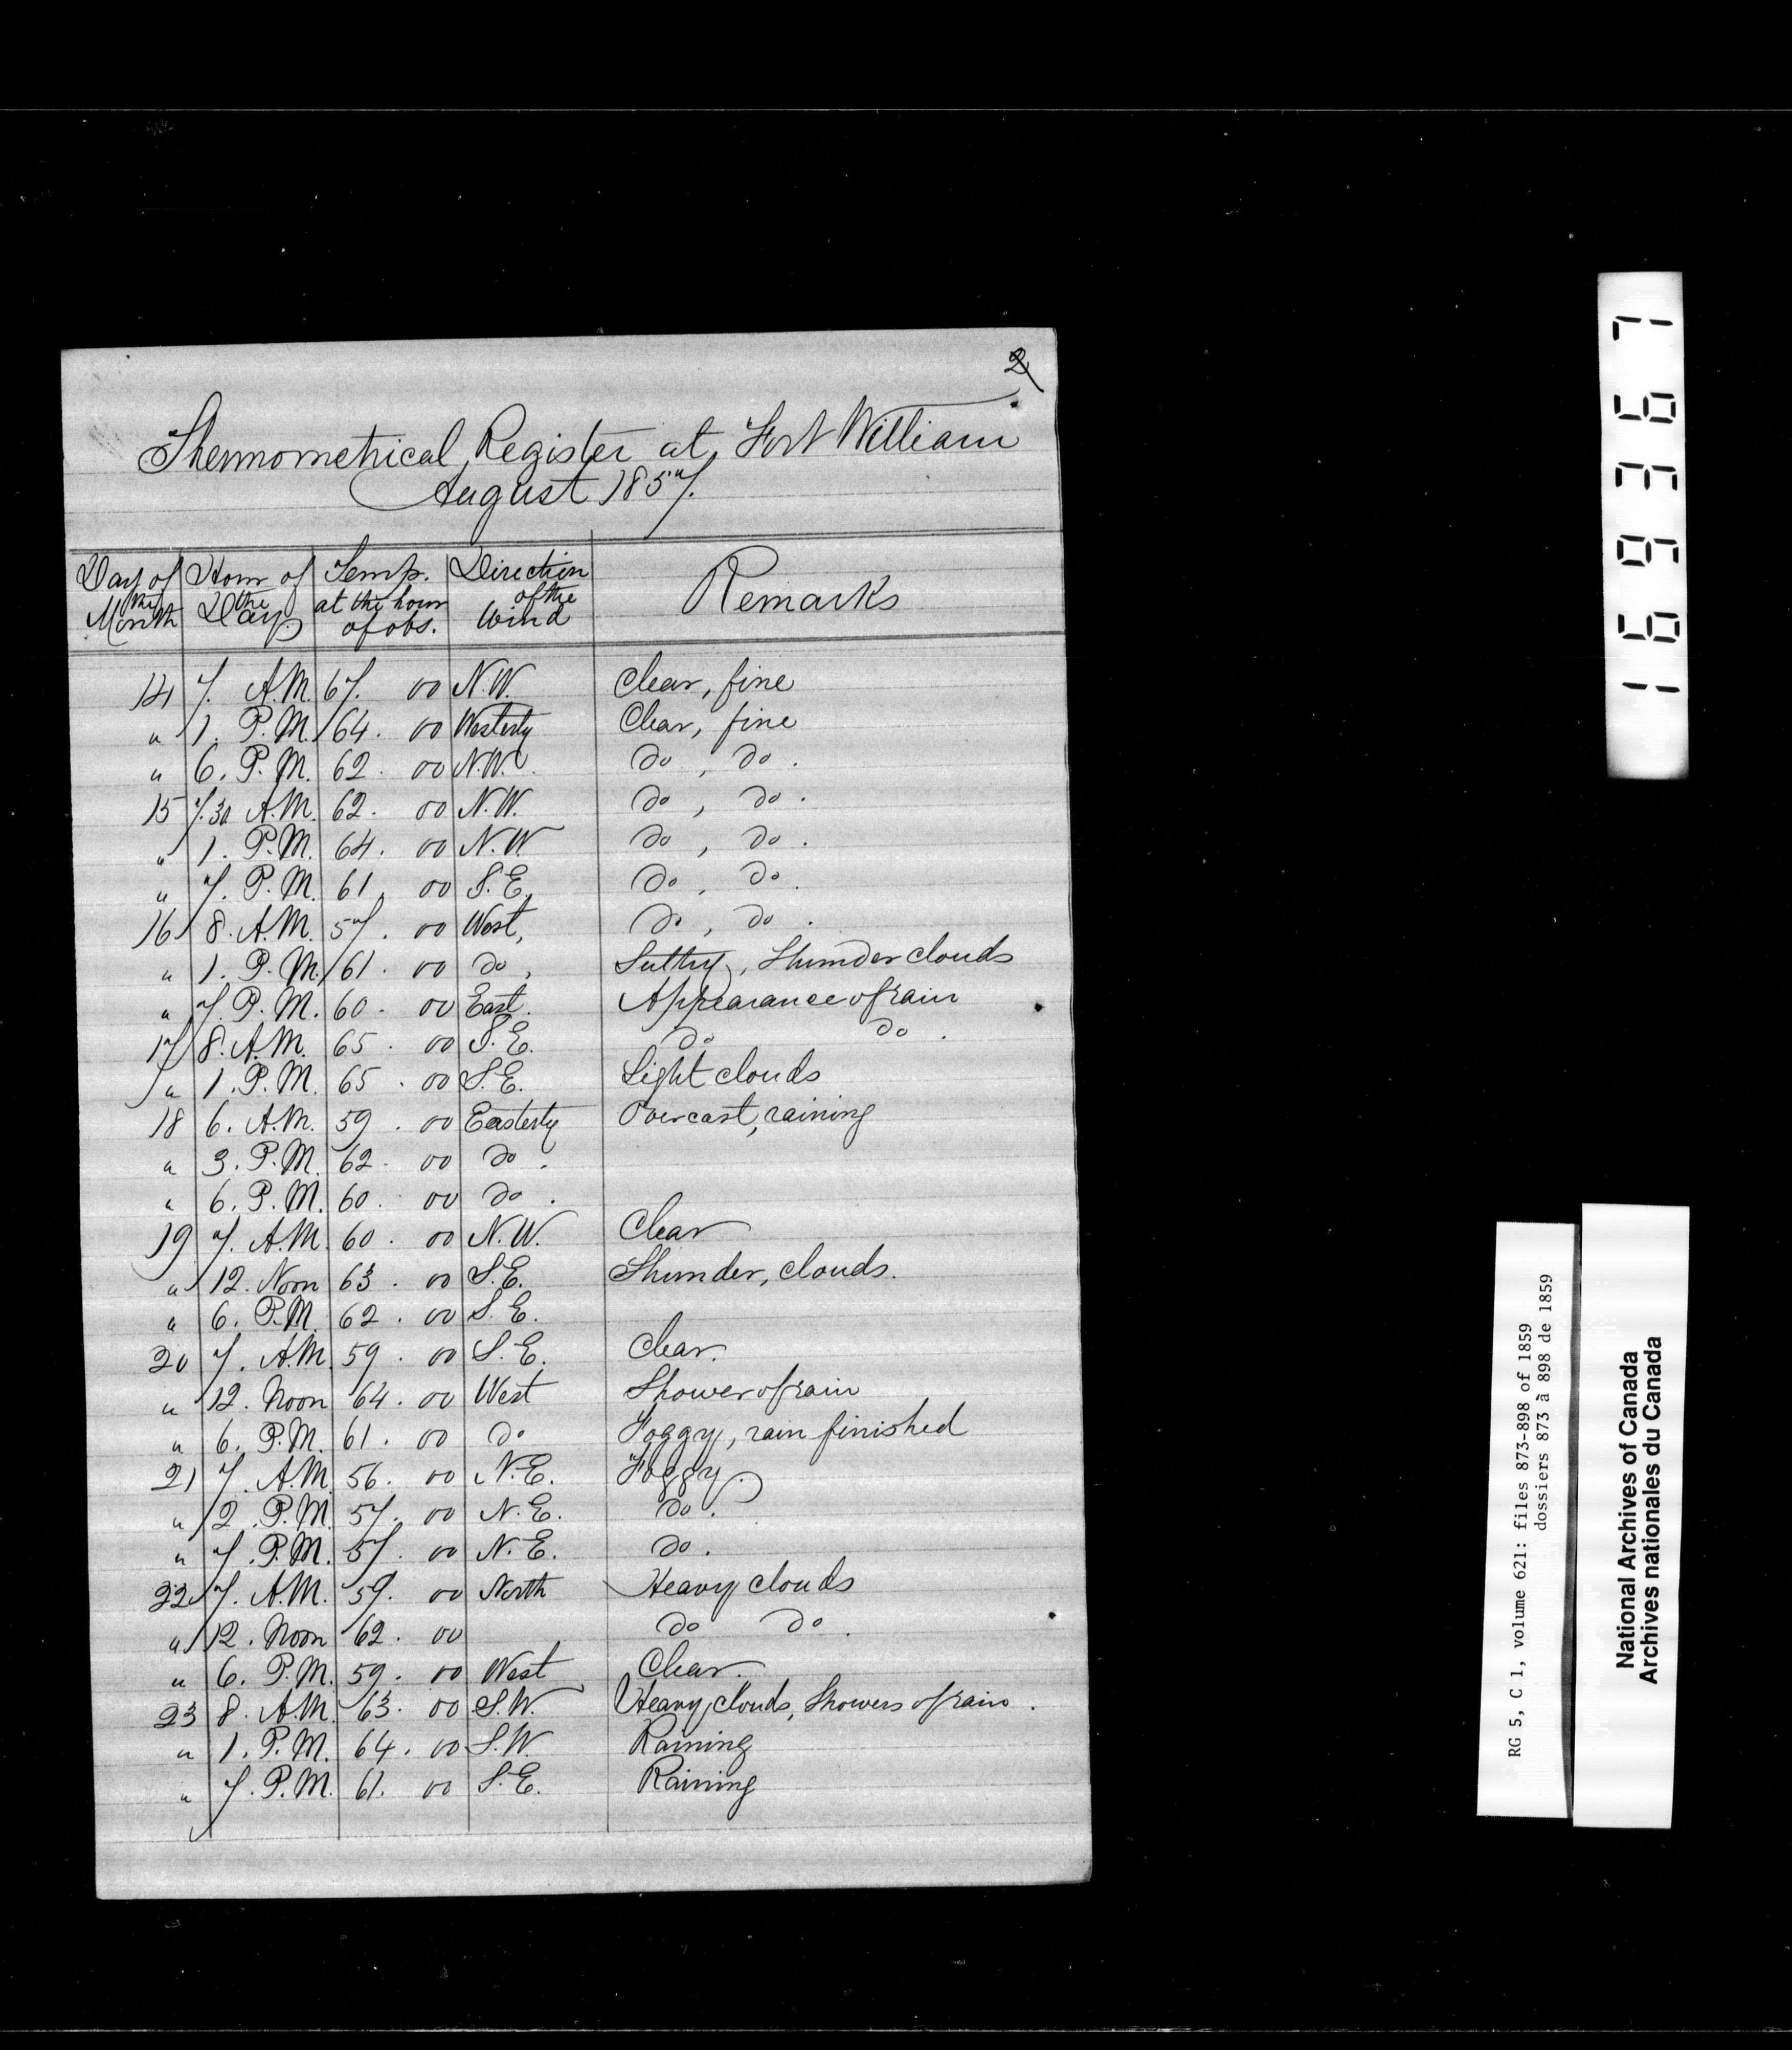 2
Thermometrical Register at Fort William
August 1857.
Day of the Month | Hour of the Day | Temp. at the hour of obs. | Direction of the Wind | Remarks
14 7. A.M. 67. 00 N.W. Clear, fine
" 1. P.M. 64. 00 Westerly Clear, fine
" 6. P.M. 62. 00 N.W. do, do.
15 7.30 A.M. 62. 00 N.W. do, do.
" 1. P.M. 64. 00 N.W. do, do.
" 7. P.M. 61. 00 S.E. do, do.
16 8. A.M. 57. 00 West, do, do.
" 1. P.M. 61. 00 do, Sultry, Thunder clouds
" 7. P.M. 60. 00 East. Appearance of rain
17 8. A.M. 65. 00 S.E. do do.
" 1. P.M. 65. 00 S.E. Light clouds
18 6. A.M. 59. 00 Easterly Overcast, raining
" 3. P.M. 62. 00 do.
" 6. P.M. 60. 00 do.
19 7. A.M. 60. 00 N.W. Clear
" 12. Noon 63. 00 S.E. Thunder, clouds.
" 6. P.M. 62. 00 S.E.
20 7. A.M. 59. 00 S.E. Clear.
" 12. Noon 64. 00 West Shower of rain
" 6. P.M. 61. 00 do Foggy, rain finished
21 7. A.M. 56. 00 N.E. Foggy.
" 2. P.M. 57. 00 N.E. do.
" 7. P.M. 57. 00 N.E. do.
22 7. A.M. 59. 00 North Heavy clouds
" 12. Noon 62. 00 do do.
" 6. P.M. 59. 00 West Clear.
23 8. A.M. 63. 00 S.W. Heavy clouds, Showers of rain.
" 1. P.M. 64. 00 S.W. Raining
" 7. P.M. 61. 00 S.E. Raining
169367
RG 5, C 1, volume 621: files 873-898 of 1859
dossiers 873 à 898 de 1859
National Archives of Canada
Archives nationales du Canada